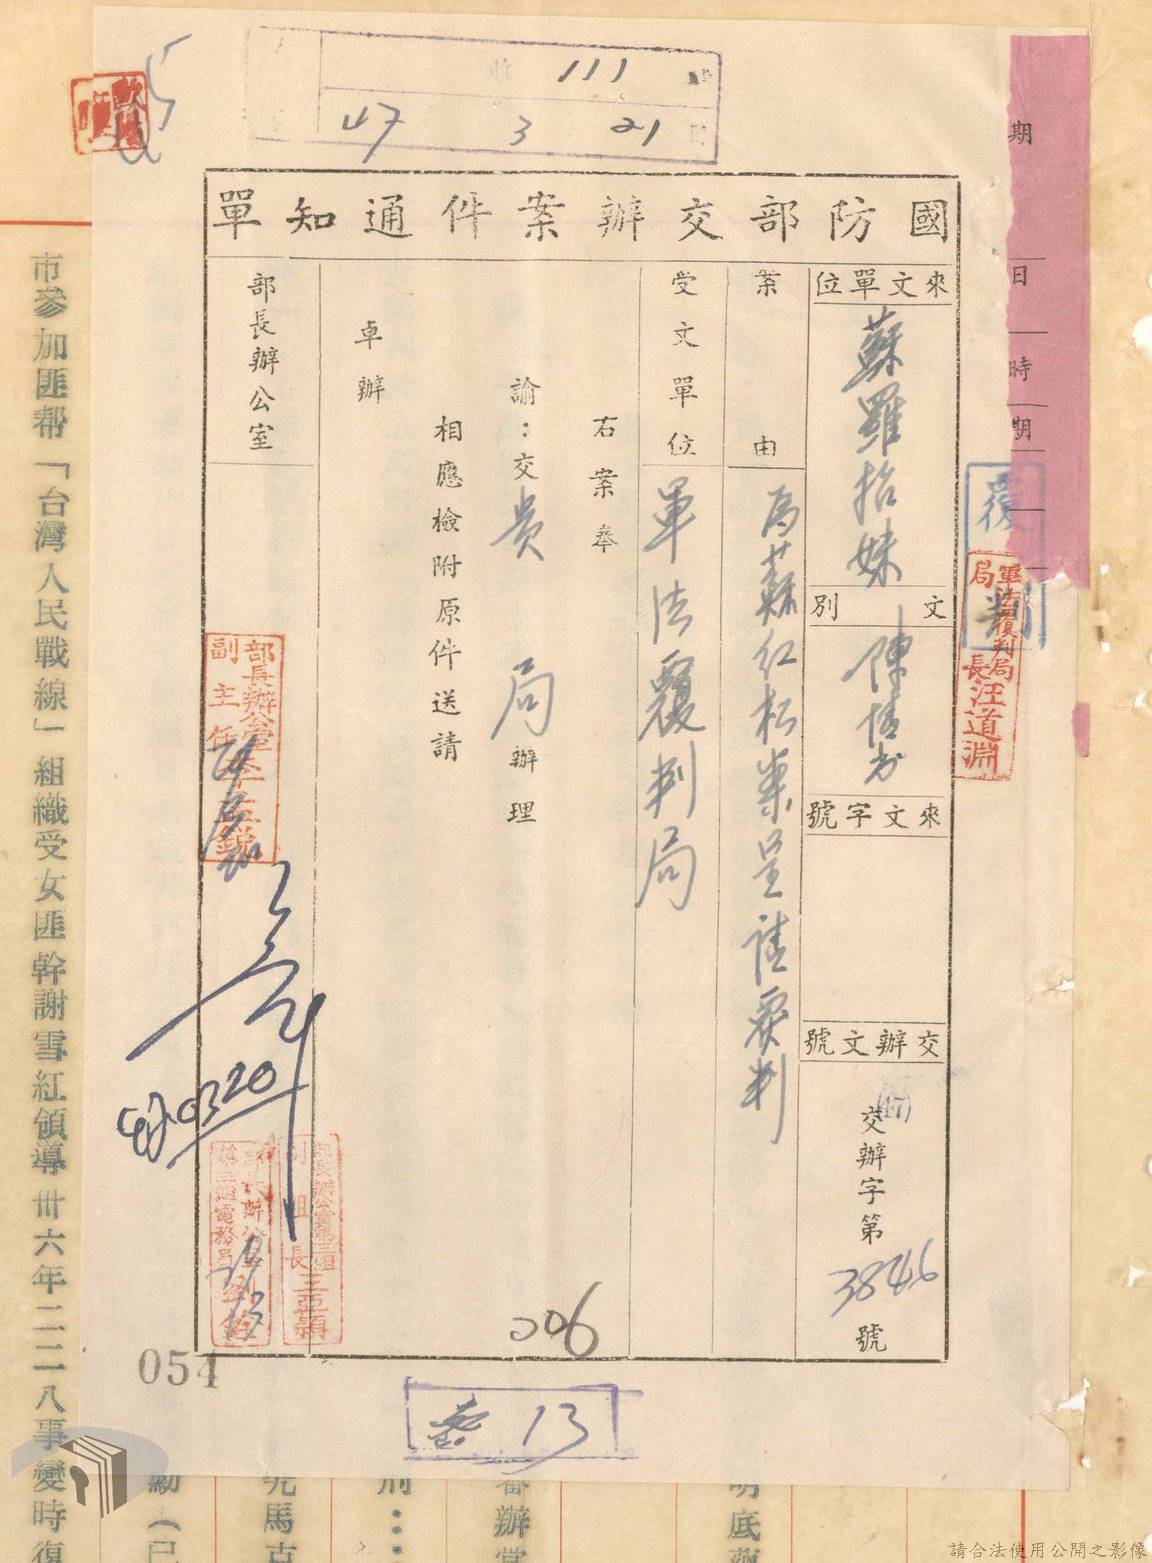 收 111
47 3 21
國防部交辦案件通知單
來文單位
蘇羅招妹
文別
陳情書
來文字號
交辦文號
(47)交辦字第3846號
案由
為蘇紅松案呈請覆判
受文單位
軍法覆判局
右案奉
諭：交貴局辦理
相應檢附原件送請
卓辦
部長辦公室
部長辦公室
副主任
部長辦公室第三組
副組長
軍法覆判局
局長汪道淵
覆判
期
日
時
期
006
054
叁13
市參加匪幇「台灣人民戰線」組織受女匪幹謝雪紅領導卅六年二二八事變時復
請合法使用公開之影像